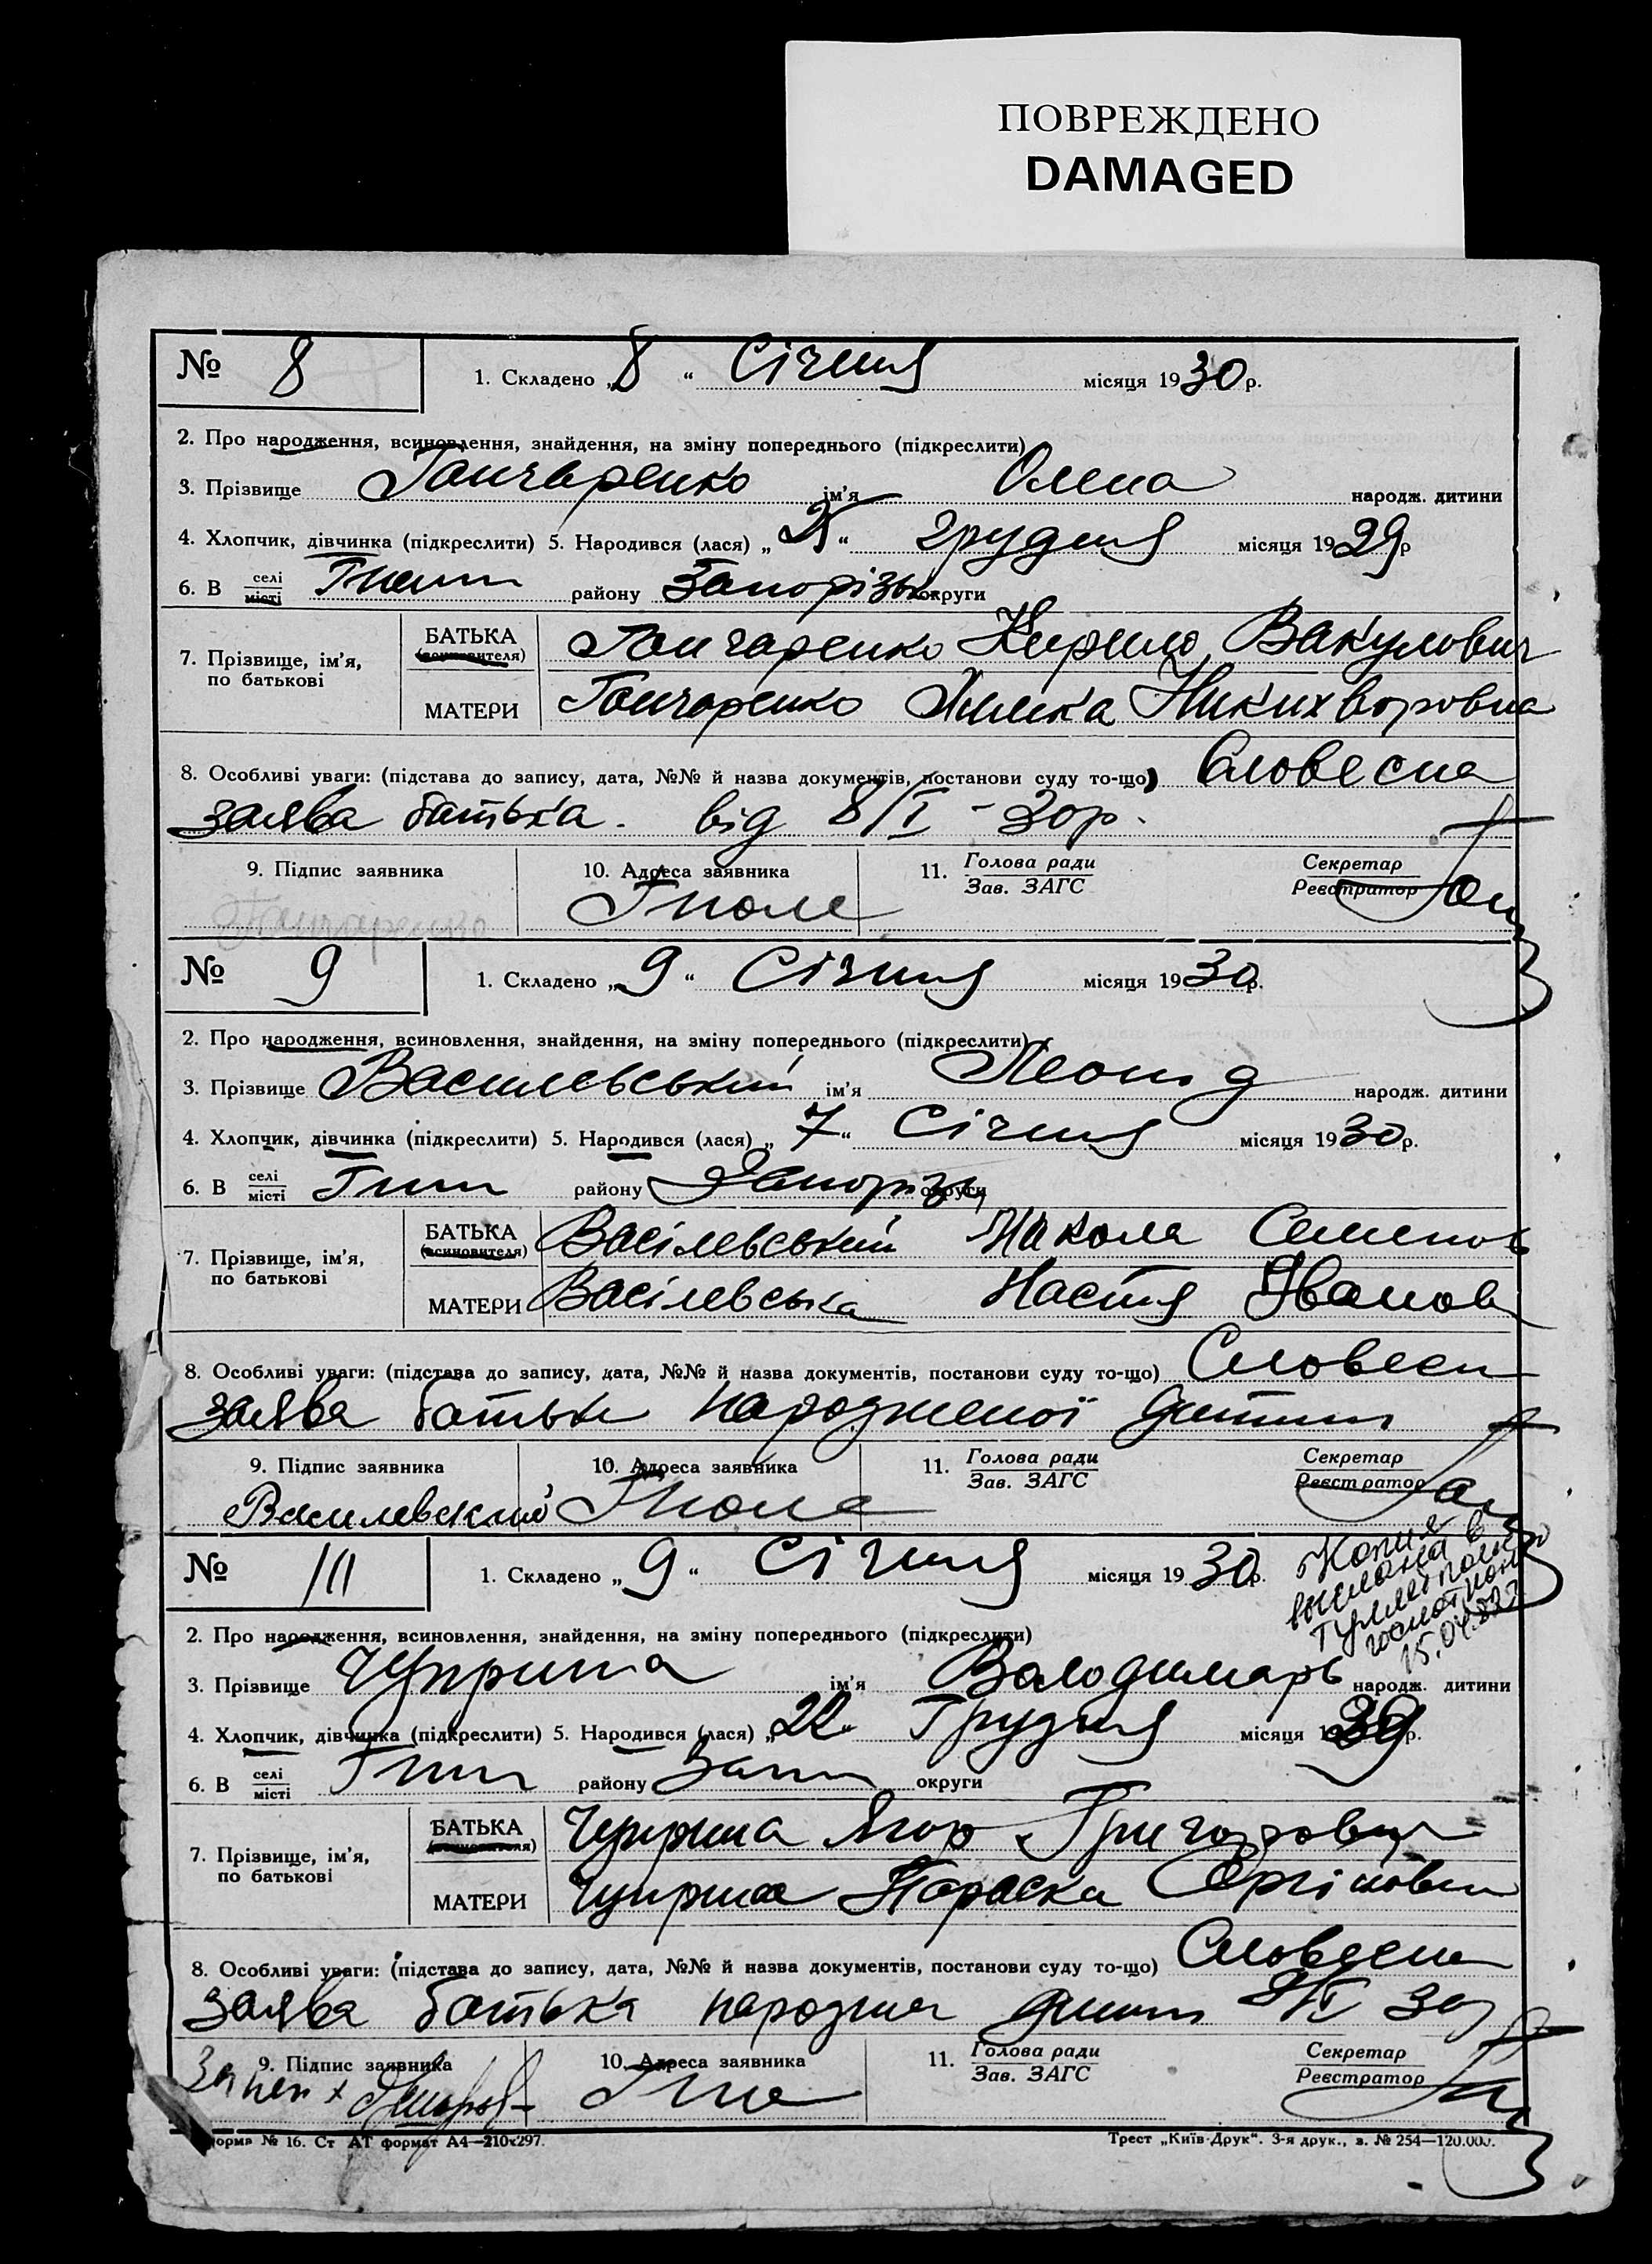 ПОВРЕЖДЕНО
DAMAGED
№ 8
1. Складено „8“ Січня місяця 1930 р.
2. Про народження, всиновлення, знайдення, на зміну попереднього (підкреслити)
3. Прізвище Гончаренко ім’я Олена народж. дитини
4. Хлопчик, дівчинка (підкреслити) 5. Народився (лася) „25“ грудня місяця 1929 р
6. В селі місті району Запорізьк округи
7. Прізвище, ім’я, по батькові
БАТЬКА (всиновителя) Гончаренко Кирило Вакулович
МАТЕРИ Гончаренко Никихворовна
8. Особливі уваги: (підстава до запису, дата, №№ й назва документів, постанови суду то-що) Словесна
заява батька. від 8/I – 30р.
9. Підпис заявника 10. Адреса заявника 11. Голова ради Зав. ЗАГС Секретар Реєстратор
Гончаренко
№ 9
1. Складено „9“ Січня місяця 1930 р.
2. Про народження, всиновлення, знайдення, на зміну попереднього (підкреслити)
3. Прізвище Василєвський ім’я Леонід народж. дитини
4. Хлопчик, дівчинка (підкреслити) 5. Народився (лася) „7“ Січня місяця 1930 р.
6. В селі місті району Запоріз округи
7. Прізвище, ім’я, по батькові
БАТЬКА (всиновителя) Васілевський Микола Семенов
МАТЕРИ Васілевська Настя Іванов
8. Особливі уваги: (підстава до запису, дата, №№ й назва документів, постанови суду то-що) Словесн
заява батьки народженої дитини
9. Підпис заявника 10. Адреса заявника 11. Голова ради Зав. ЗАГС Секретар Реєстратор
Василевский
№ 10
1. Складено „9“ Січня місяця 1930 р.
Копия
выслана в
15.04.
2. Про народження, всиновлення, знайдення, на зміну попереднього (підкреслити)
3. Прізвище Чуприна ім’я Володимарь народж. дитини
4. Хлопчик, дівчинка (підкреслити) 5. Народився (лася) „22“ Грудня місяця 1929 р.
6. В селі місті району Зап округи
7. Прізвище, ім’я, по батькові
БАТЬКА (всиновителя) Чуприна Ягор Григорович
МАТЕРИ Чуприна Параска
8. Особливі уваги: (підстава до запису, дата, №№ й назва документів, постанови суду то-що) Словесна
заява батька народжен дитини 9/I 30р
9. Підпис заявника 10. Адреса заявника 11. Голова ради Зав. ЗАГС Секретар Реєстратор
Форма № 16. Ст АТ формат А4—210×297. Трест „Київ-Друк“. 3-я друк., з. № 254—120.000.